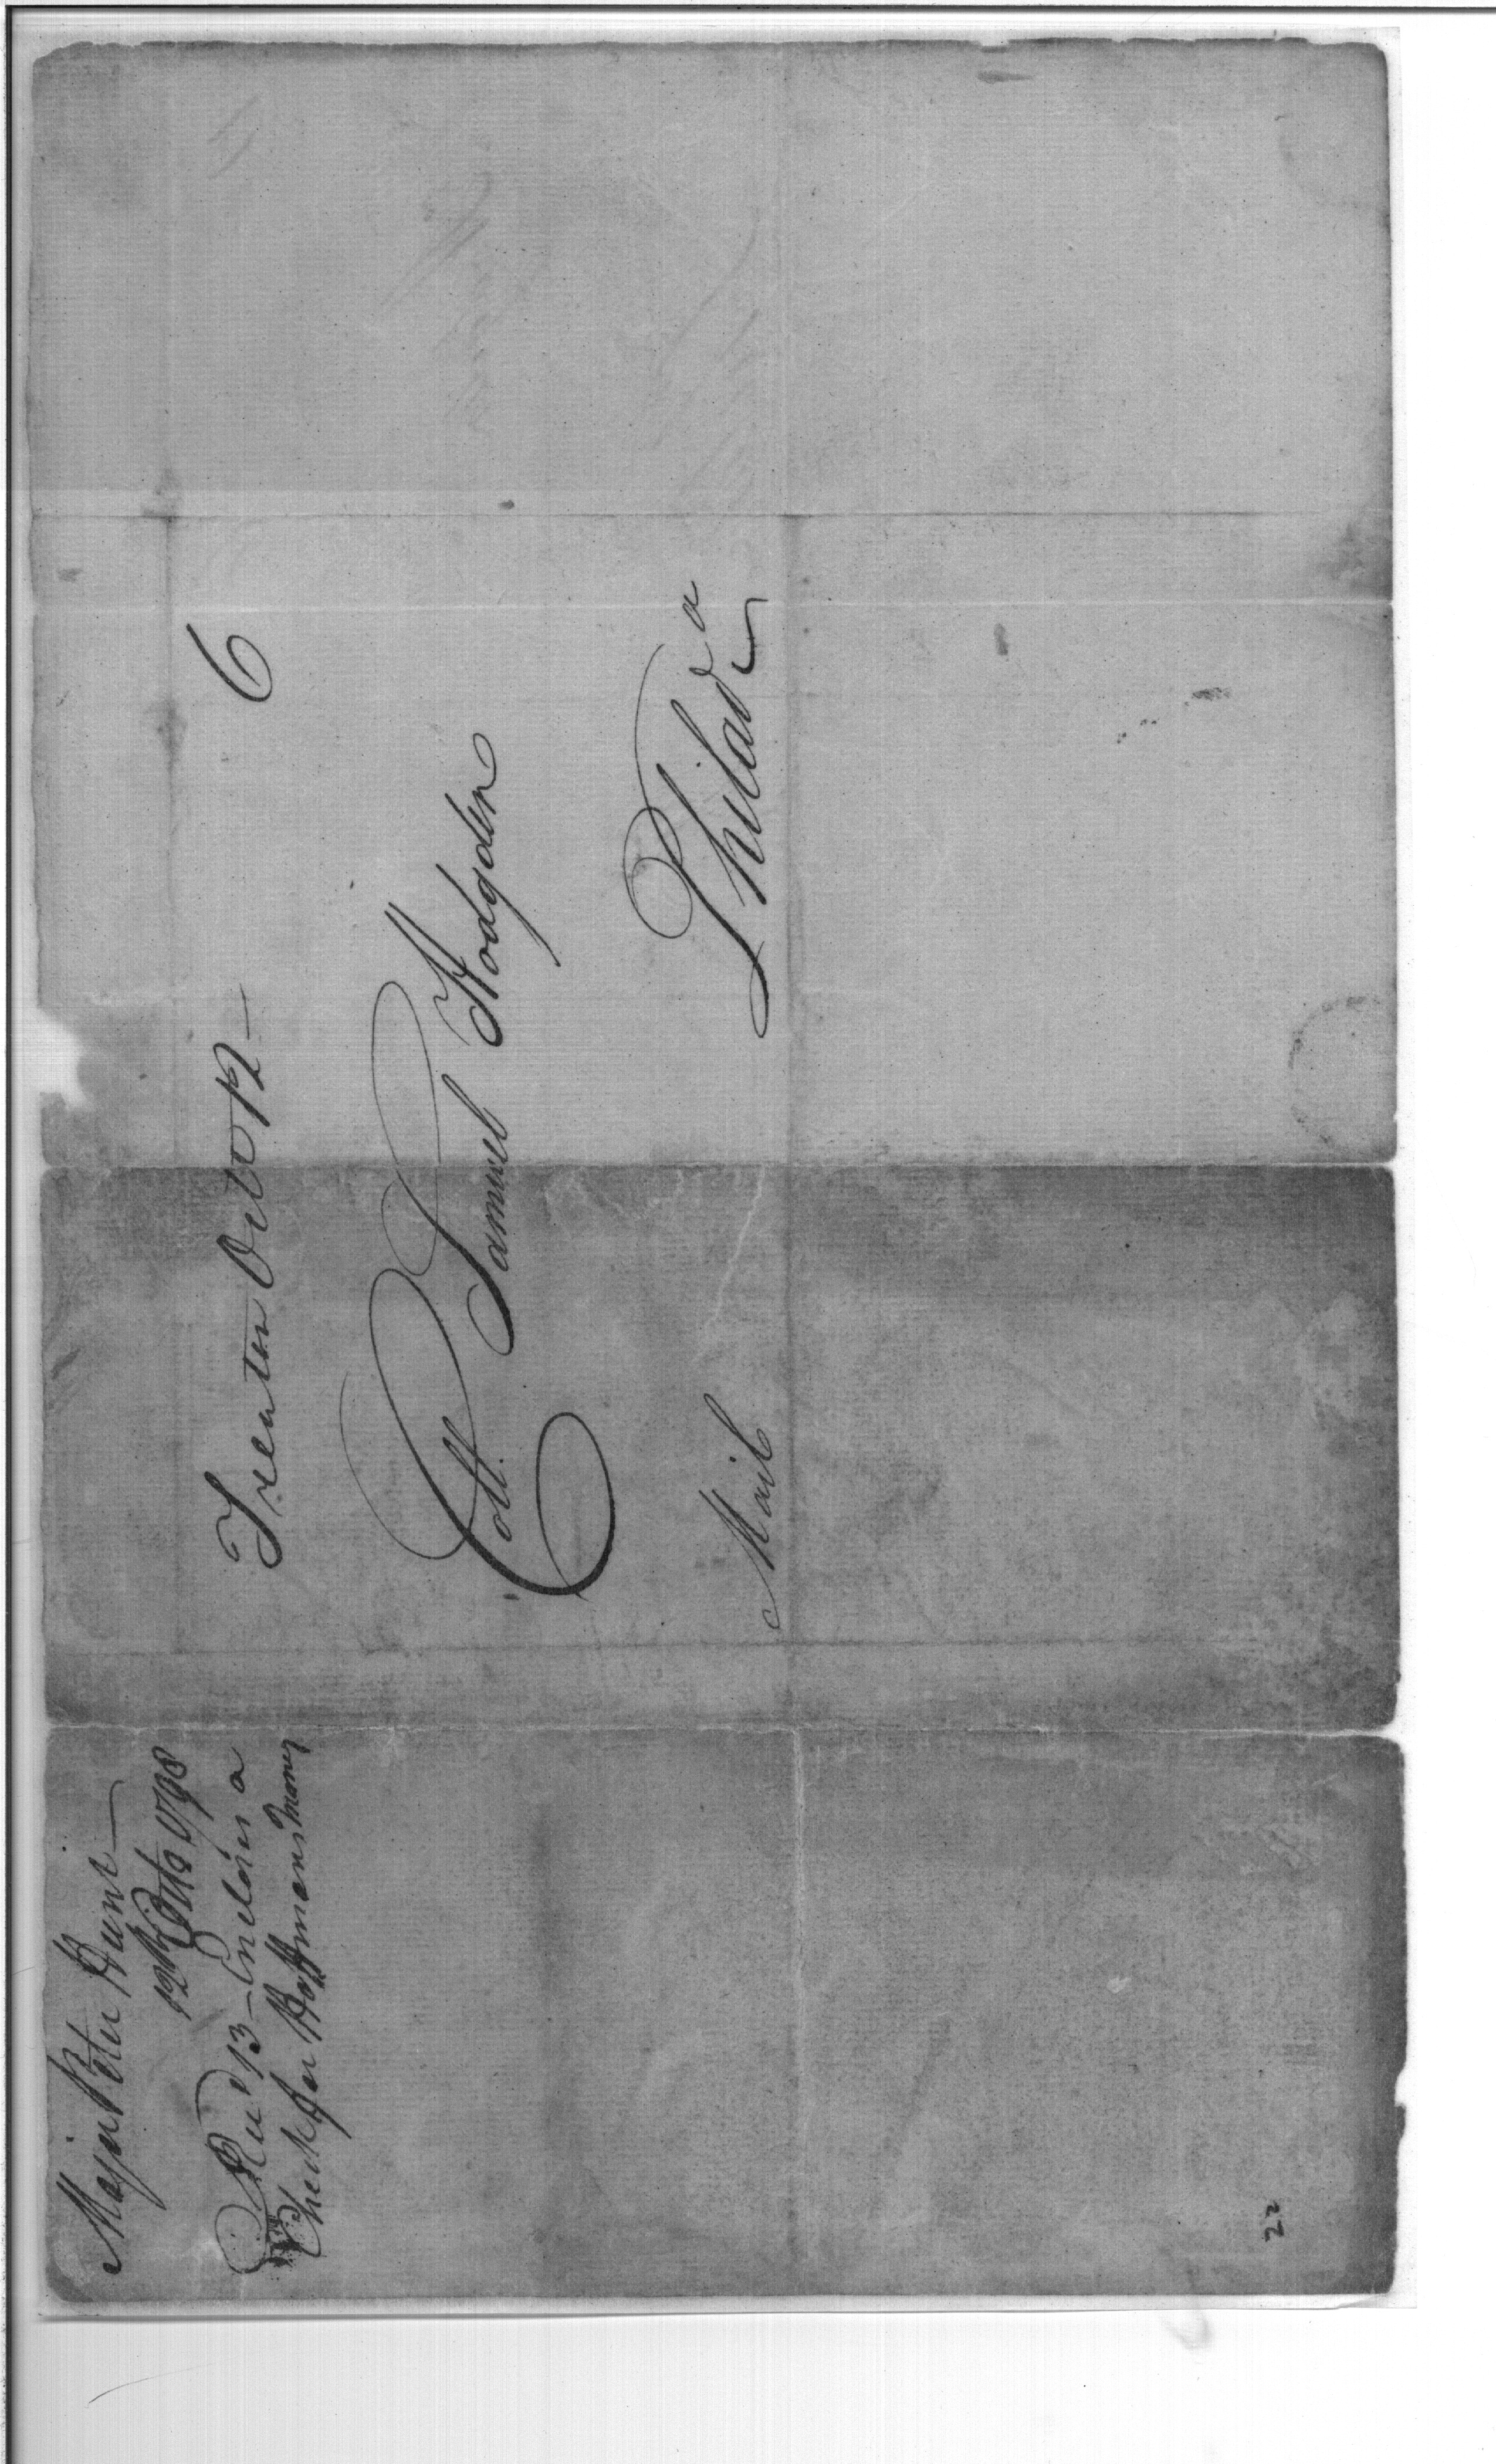 Major Peter Hunt
12th Octo 1798
Recd 13 - Enclosing a
Check for Hoffmans Money
Trenton Octo 12 -
6
Coll. Samuel Hodgden
Mail
Philada
22